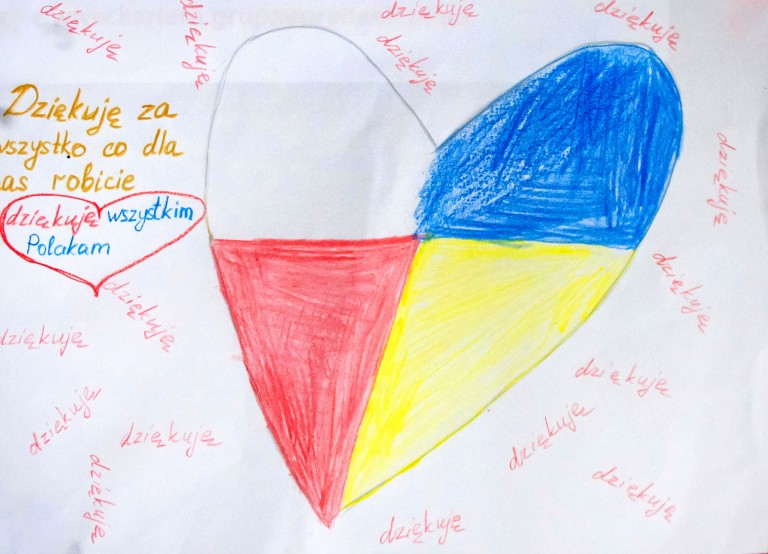 dziękuję
dziękuję
dziękuję
dziękuję
dziękuję
Dziękuję za
wszystko co dla
as robicie
dziękuję wszystkim
Polakam
dziękuję
dziękuję
dziękuję
dziękuję
dziękuję
dziękuję
dziękuję
dziękuję
dziękuję
dziękuję
dziękuję